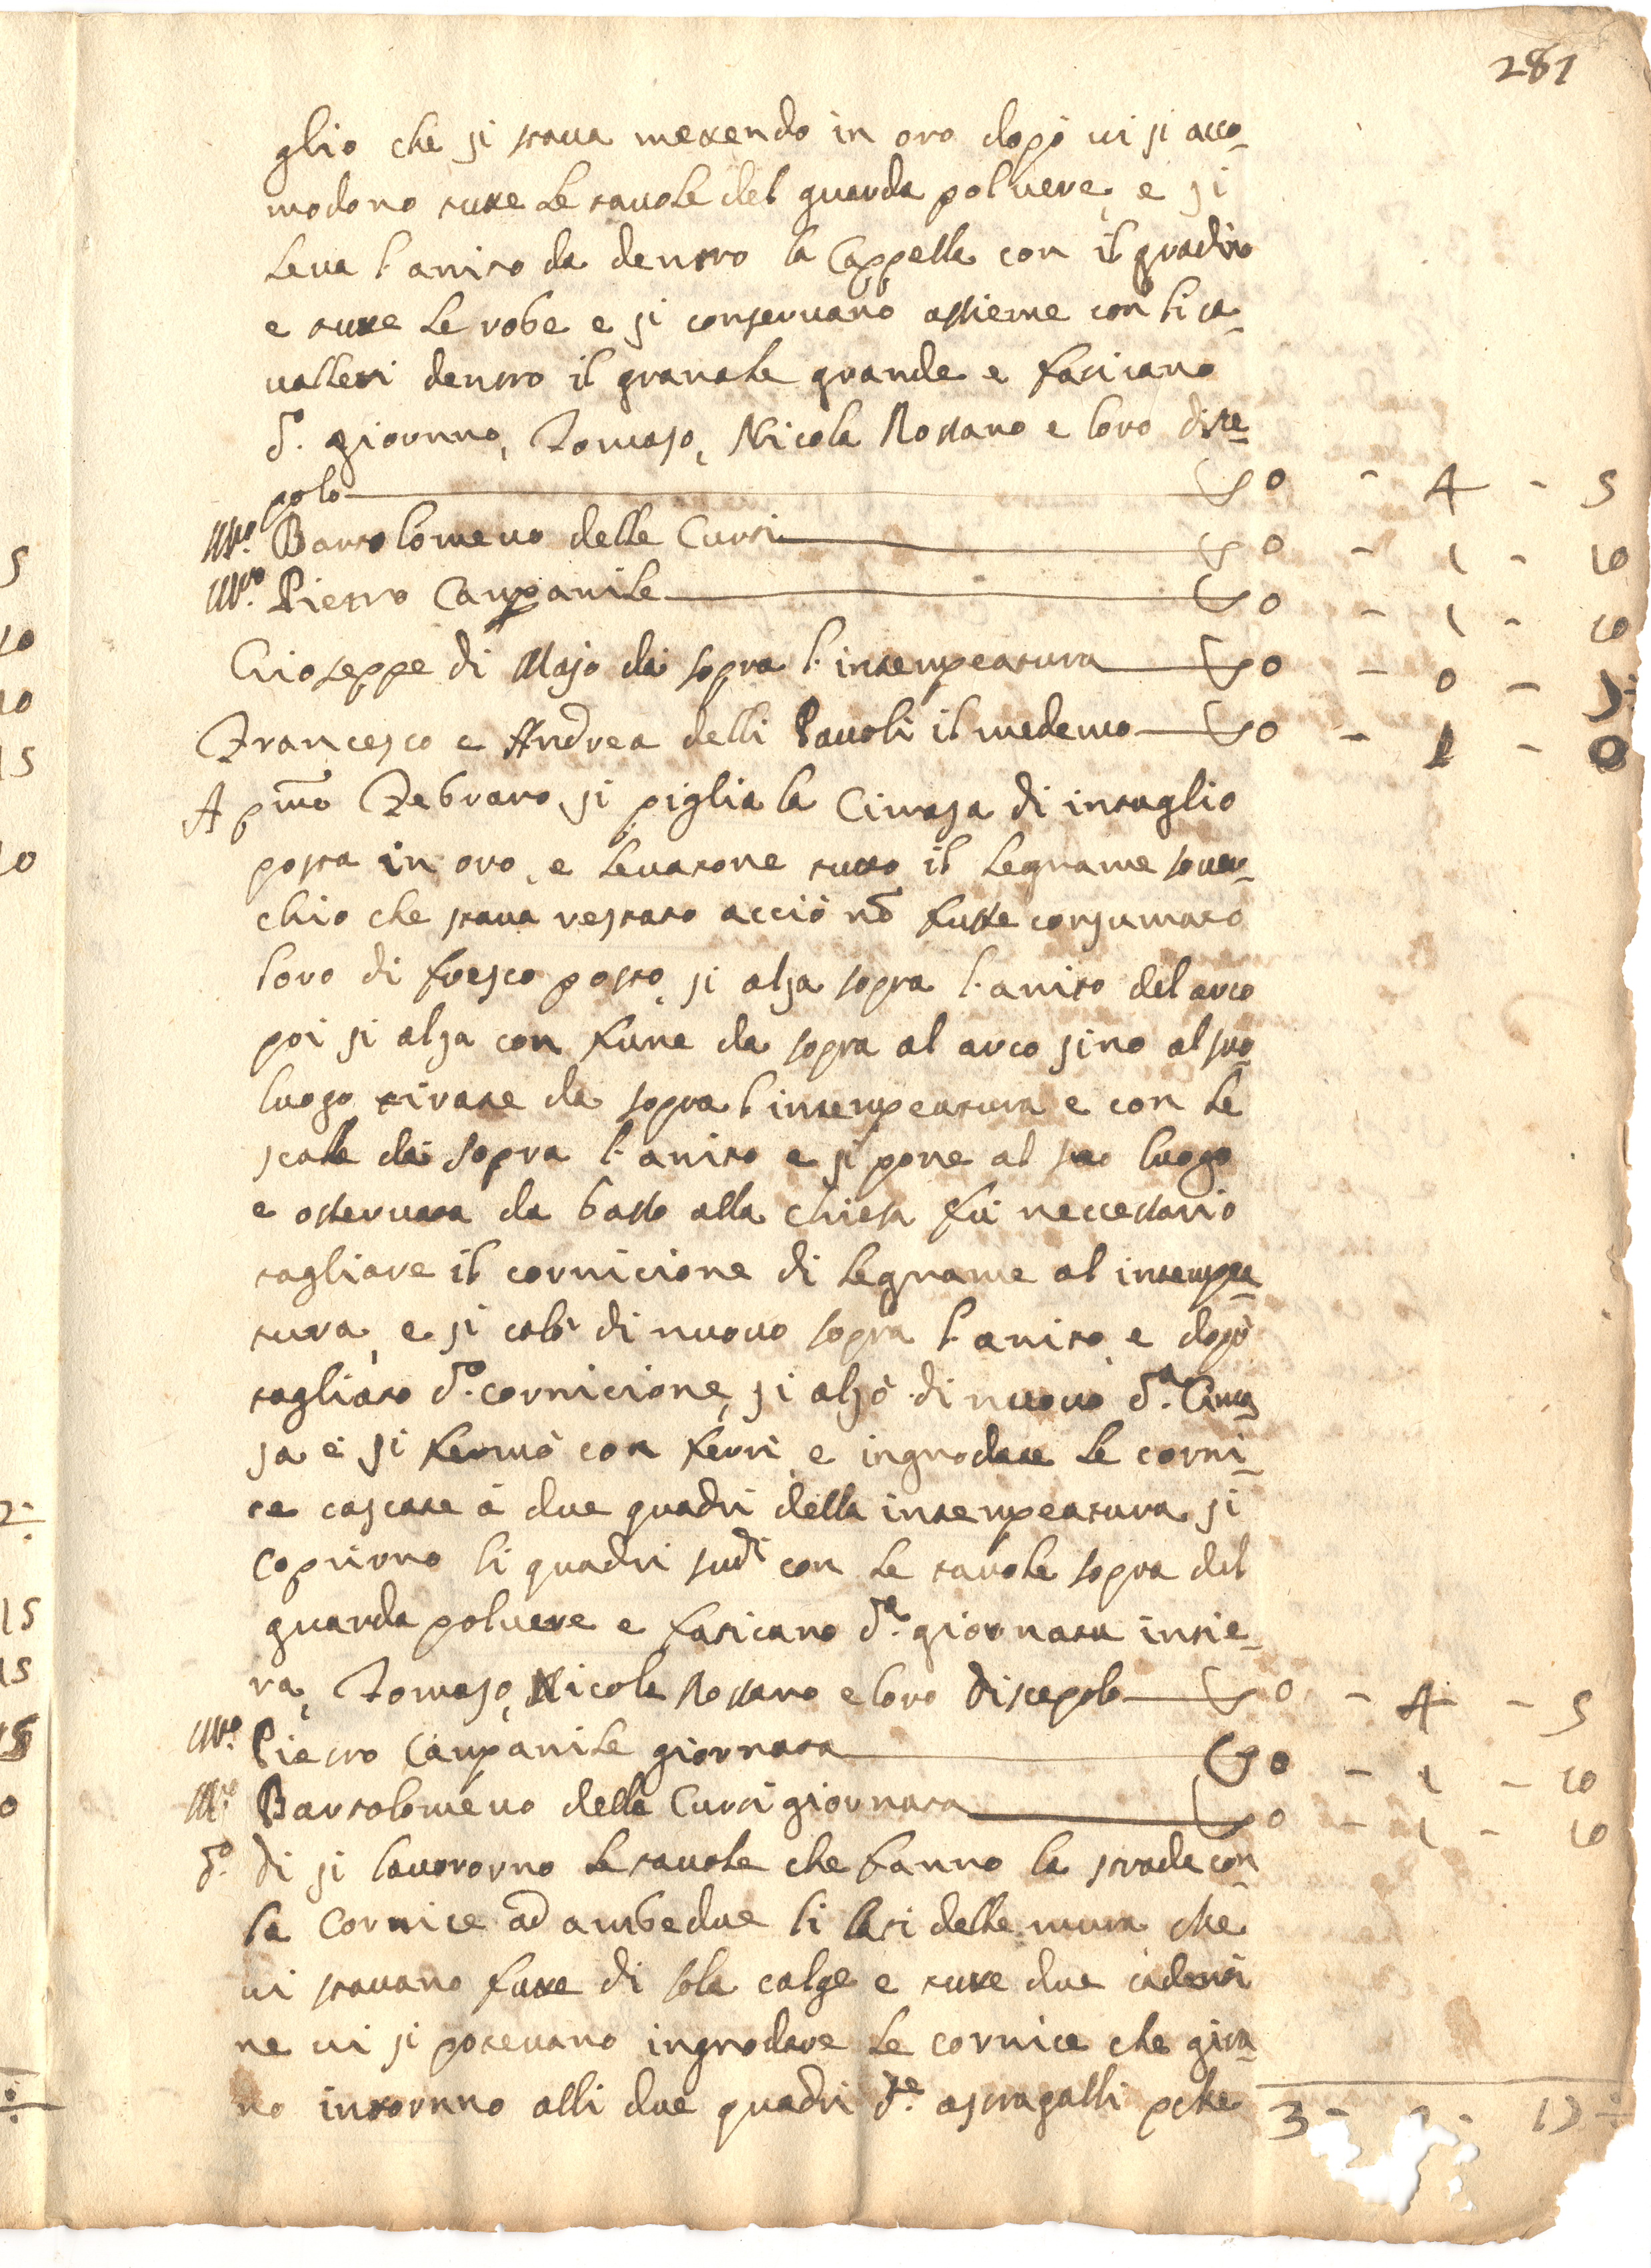 281
glio che si staua mettendo in oro dopò ui si acco-
modono tutte le tauole del guarda poluere, e si
leua l'anito da dentro la Cappella con il gradino
e tutte le robe e si conseruano assieme con li ca-
ualletti dentro il granale grande e faticano
d.º giornno, Tomaso, Nicola Rossano e loro disce-
polo — 0 - 4 - 5
M.ro Bartolomeuo delle Curti — 0 - 1 - 10
M.ro Pietro Campanile — 0 - 1 - 10
Gioseppe di Majo da sopra l'intempeatura — 0 - 0 -
Francesco e Andrea delli Pauoli il medemo — 0 - 1 - 0
A pmo Febraro, si piglia la Cimasa di intaglio
posta in oro, e leuatone tutto il legname souer-
chio che staua restato acciò nõ fusse consumato
loro di fresco posto, si alza sopra l'anito del arco
poi si alza con fune da sopra al arco sino al suo
luogo tirate da sopra l'intempeatura e con le
scale da sopra l'anito e si pone al suo luogo
e osseruata da basso alla chiesa fù neccessario
tagliare il cornicione di legname al intempea-
tura, e si calò di nuouo sopra l'anito, e dopò
tagliato d.º cornicione, si alzò di nuouo d.ª Cima-
sa e si fermò con ferri, e ingnodate le corni-
ce cascate à due quadri della intempeatura, si
coprirno li quadri sudi con le tauole sopra del
guarda poluere e faticano d.ª giornata intie-
ra, Tomaso, Nicola Rossano e loro discepolo — 0 - 4 - 5
M.ro Pietro Campanile giornata — 0 - 1 - 10
M.ro Bartolomeuo delle Curti giornata — 0 - 1 - 10
d.º di si lauororno le tauole che fanno la strada con
la Cornice ad ambedue li lati delle mura che
ui stauano fatte di sola calge e tutte due cadenti
ne ui si poteuano ingnodare le cornice che gira-
no intornno alli due quadri d.e astragalli pche
3 -